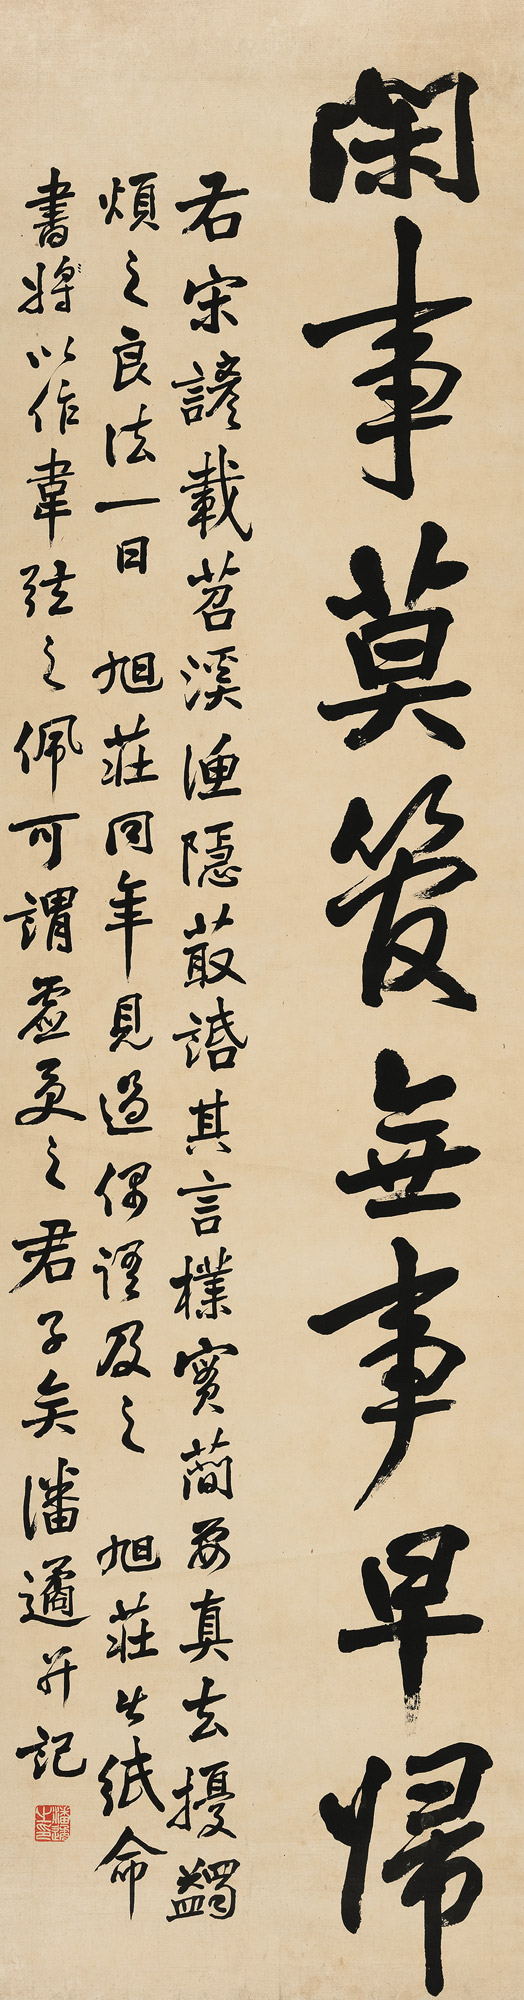 閑事莫管無事早歸
右宋諺載苕溪漁隱叢話其言樸實簡要真去擾蠲
煩之良法一日 旭莊同年見過偶語及之 旭莊出紙命
書將以作韋弦之佩可謂虛受之君子矣潘遹并記
潘遹之印